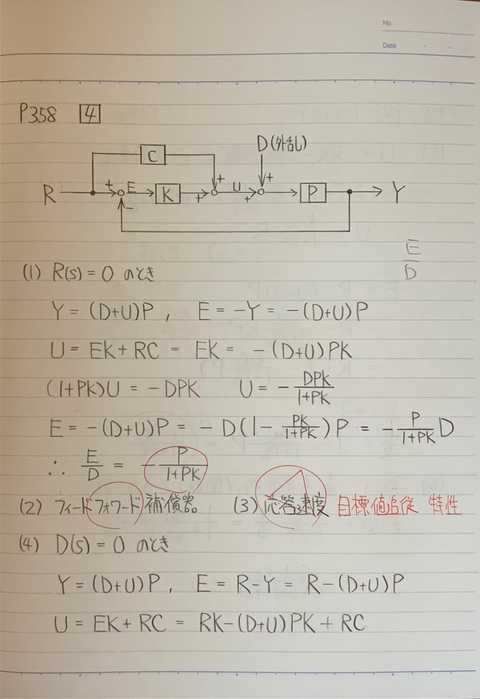 No.
Date
P358 4
D(外乱)
C
R + E K + U + P Y
-
E/D
(1) R(s) = 0 のとき
Y = (D+U)P , E = -Y = -(D+U)P
U = EK + RC = EK = -(D+U)PK
(1+PK)U = -DPK U = - DPK/1+PK
E = -(D+U)P = - D(1 - PK/1+PK)P = - P/1+PK D
∴ E/D = - P/1+PK
(2) フィードフォワード補償器 (3) 応答速度 目標値追従 特性
(4) D(s) = 0 のとき
Y = (D+U)P , E = R-Y = R-(D+U)P
U = EK + RC = RK-(D+U)PK + RC